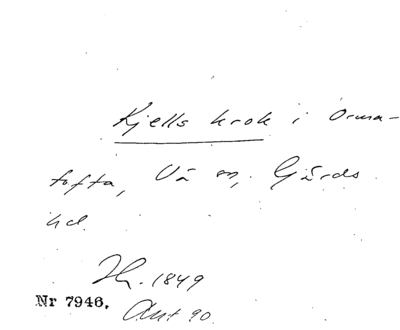 Kjells krok i Orma-
tofta, Vä sn, Gärds
hd.
Hr. 1849
Nr 7946.
Ant 90